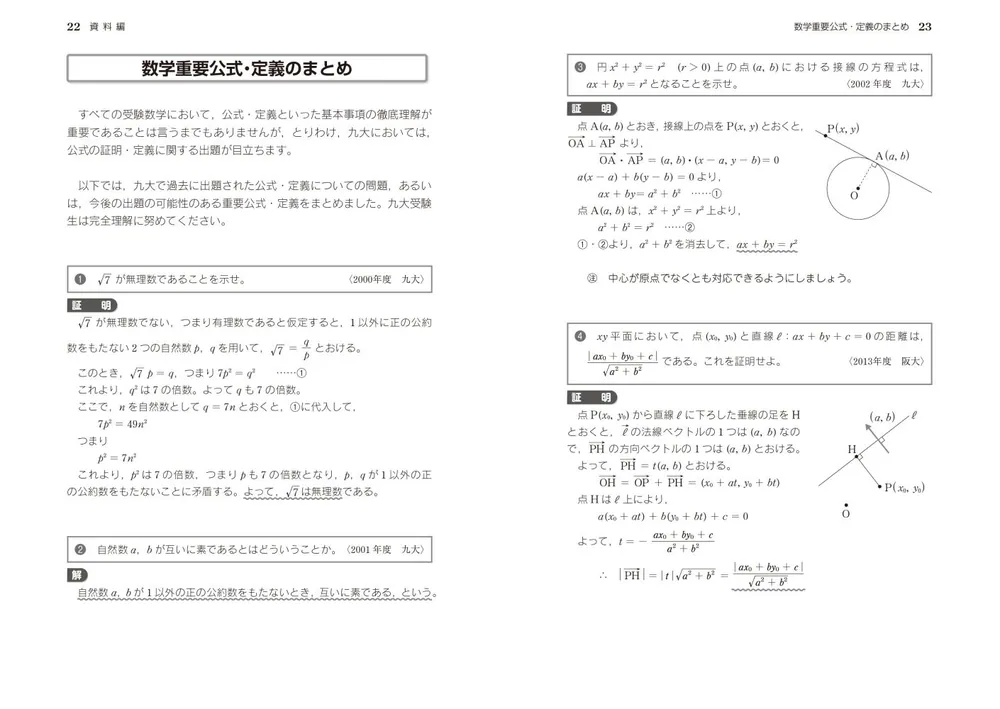 22 資料編
数学重要公式・定義のまとめ
すべての受験数学において，公式・定義といった基本事項の徹底理解が
重要であることは言うまでもありませんが，とりわけ，九大においては，
公式の証明・定義に関する出題が目立ちます。
以下では，九大で過去に出題された公式・定義についての問題，あるい
は，今後の出題の可能性のある重要公式・定義をまとめました。九大受験
生は完全理解に努めてください。
❶ √7 が無理数であることを示せ。 〈2000年度 九大〉
証 明
√7 が無理数でない，つまり有理数であると仮定すると，1以外に正の公約
数をもたない2つの自然数p，qを用いて，√7 = q/p とおける。
このとき，√7 p = q，つまり 7p² = q² ……①
これより，q²は7の倍数。よってqも7の倍数。
ここで，nを自然数としてq = 7nとおくと，①に代入して，
7p² = 49n²
つまり
p² = 7n²
これより，p²は7の倍数，つまりpも7の倍数となり，p，qが1以外の正
の公約数をもたないことに矛盾する。よって，√7は無理数である。
❷ 自然数a，bが互いに素であるとはどういうことか。〈2001年度 九大〉
解
自然数a，bが1以外の正の公約数をもたないとき，互いに素である，という。
数学重要公式・定義のまとめ 23
❸ 円x² + y² = r² (r > 0)上の点(a, b)における接線の方程式は，
ax + by = r²となることを示せ。 〈2002年度 九大〉
証 明
点A(a, b)とおき，接線上の点をP(x, y)とおくと，
OA⃗ ⊥ AP⃗ より，
OA⃗・AP⃗ = (a, b)・(x − a, y − b) = 0
a(x − a) + b(y − b) = 0より，
ax + by = a² + b² ……①
点A(a, b)は，x² + y² = r²上より，
a² + b² = r² ……②
①・②より，a² + b²を消去して，ax + by = r²
P(x, y)
A(a, b)
O
㊟ 中心が原点でなくとも対応できるようにしましょう。
❹ xy平面において，点(x₀, y₀)と直線ℓ：ax + by + c = 0の距離は，
|ax₀ + by₀ + c|/√(a² + b²) である。これを証明せよ。 〈2013年度 阪大〉
証 明
点P(x₀, y₀)から直線ℓに下ろした垂線の足をH
とおくと，ℓ⃗の法線ベクトルの1つは(a, b)なの
で，PH⃗の方向ベクトルの1つは(a, b)とおける。
よって，PH⃗ = t(a, b)とおける。
OH⃗ = OP⃗ + PH⃗ = (x₀ + at, y₀ + bt)
点Hはℓ上により，
a(x₀ + at) + b(y₀ + bt) + c = 0
よって，t = − (ax₀ + by₀ + c)/(a² + b²)
∴ |PH⃗| = |t|√(a² + b²) = |ax₀ + by₀ + c|/√(a² + b²)
(a, b)
ℓ
H
P(x₀, y₀)
O